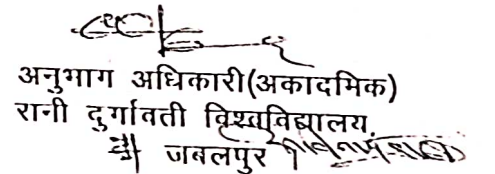 अनुभाग अधिकारी(अकादमिक)
रानी दुर्गावती विश्वविद्यालय,
जबलपुर